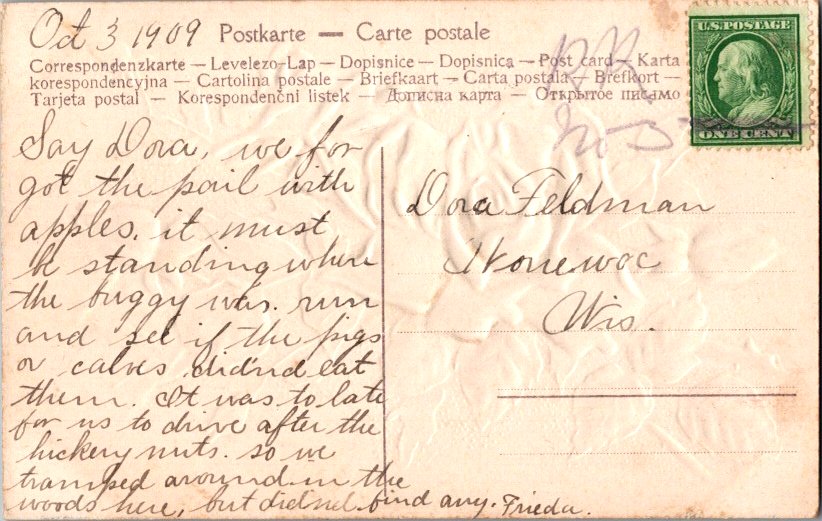 Oct 3 1909 Postkarte — Carte postale
Correspondenzkarte — Levelezo-Lap — Dopisnice — Dopisnica — Post card — Karta
korespondencyjna — Cartolina postale — Briefkaart — Carta postala — Brefkort —
Tarjeta postal — Korespondenčni listek — Дописна карта — Открытое письмо
U.S. POSTAGE
ONE CENT
Say Dora, we for
got the pail with
apples. it must
be standing where
the buggy was. run
and see if the pigs
or calves did'nd eat
them. It was to late
for us to drive after the
hickery nuts. so we
tramped around in the
woods here, but didned find any. Frieda.
Dora Feldman
Wonewoc
Wis.